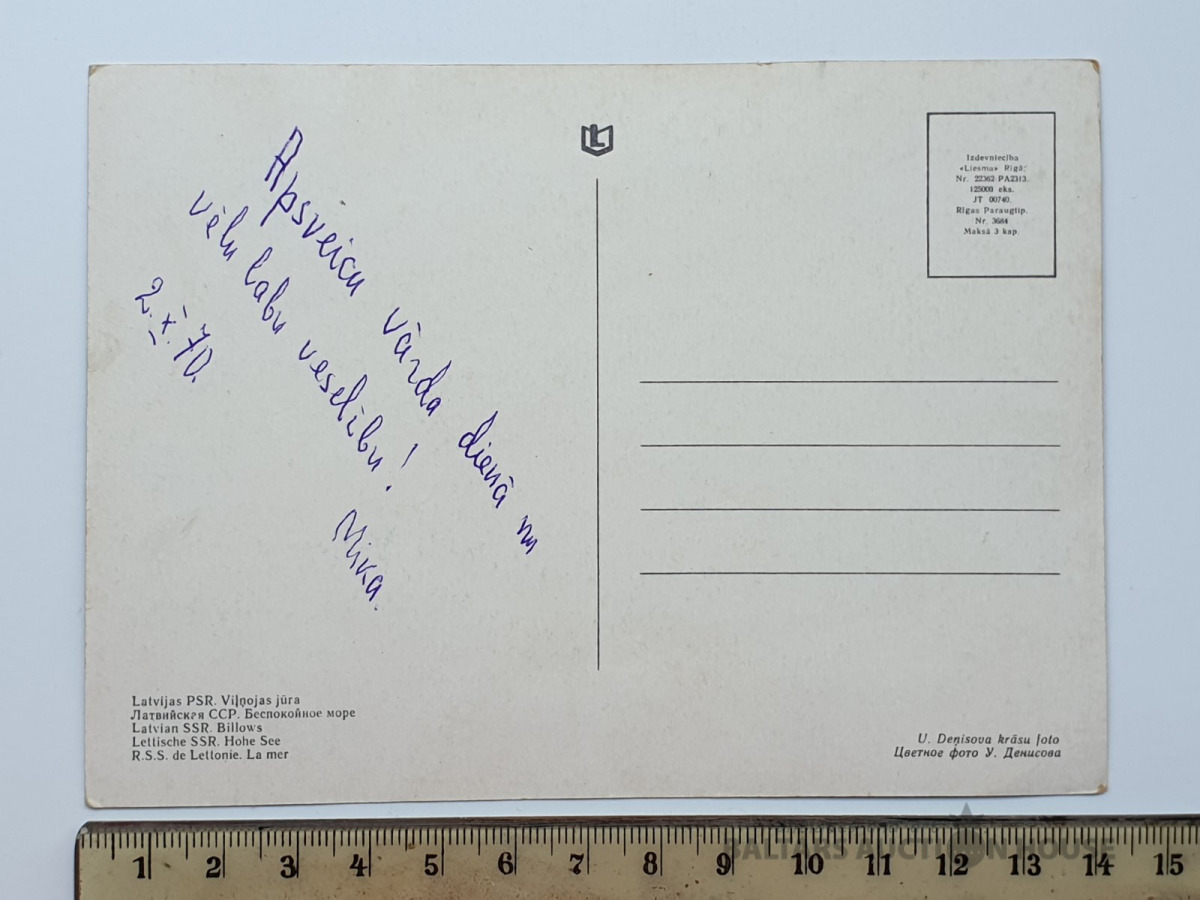 Apsveicu vārda dienā un
vēlu labu veselību!
Mika.
2.X.70.
L
Izdevniecība
«Liesma» Rīgā.
Nr. 22362 PA2313.
125000 eks.
JT 00740.
Rīgas Paraugtip.
Nr. 3684
Maksā 3 kap.
Latvijas PSR. Viļņojas jūra
Латвийская ССР. Беспокойное море
Latvian SSR. Billows
Lettische SSR. Hohe See
R.S.S. de Lettonie. La mer
U. Deņisova krāsu foto
Цветное фото У. Денисова
BALTARS AUCTION HOUSE
1 2 3 4 5 6 7 8 9 10 11 12 13 14 15